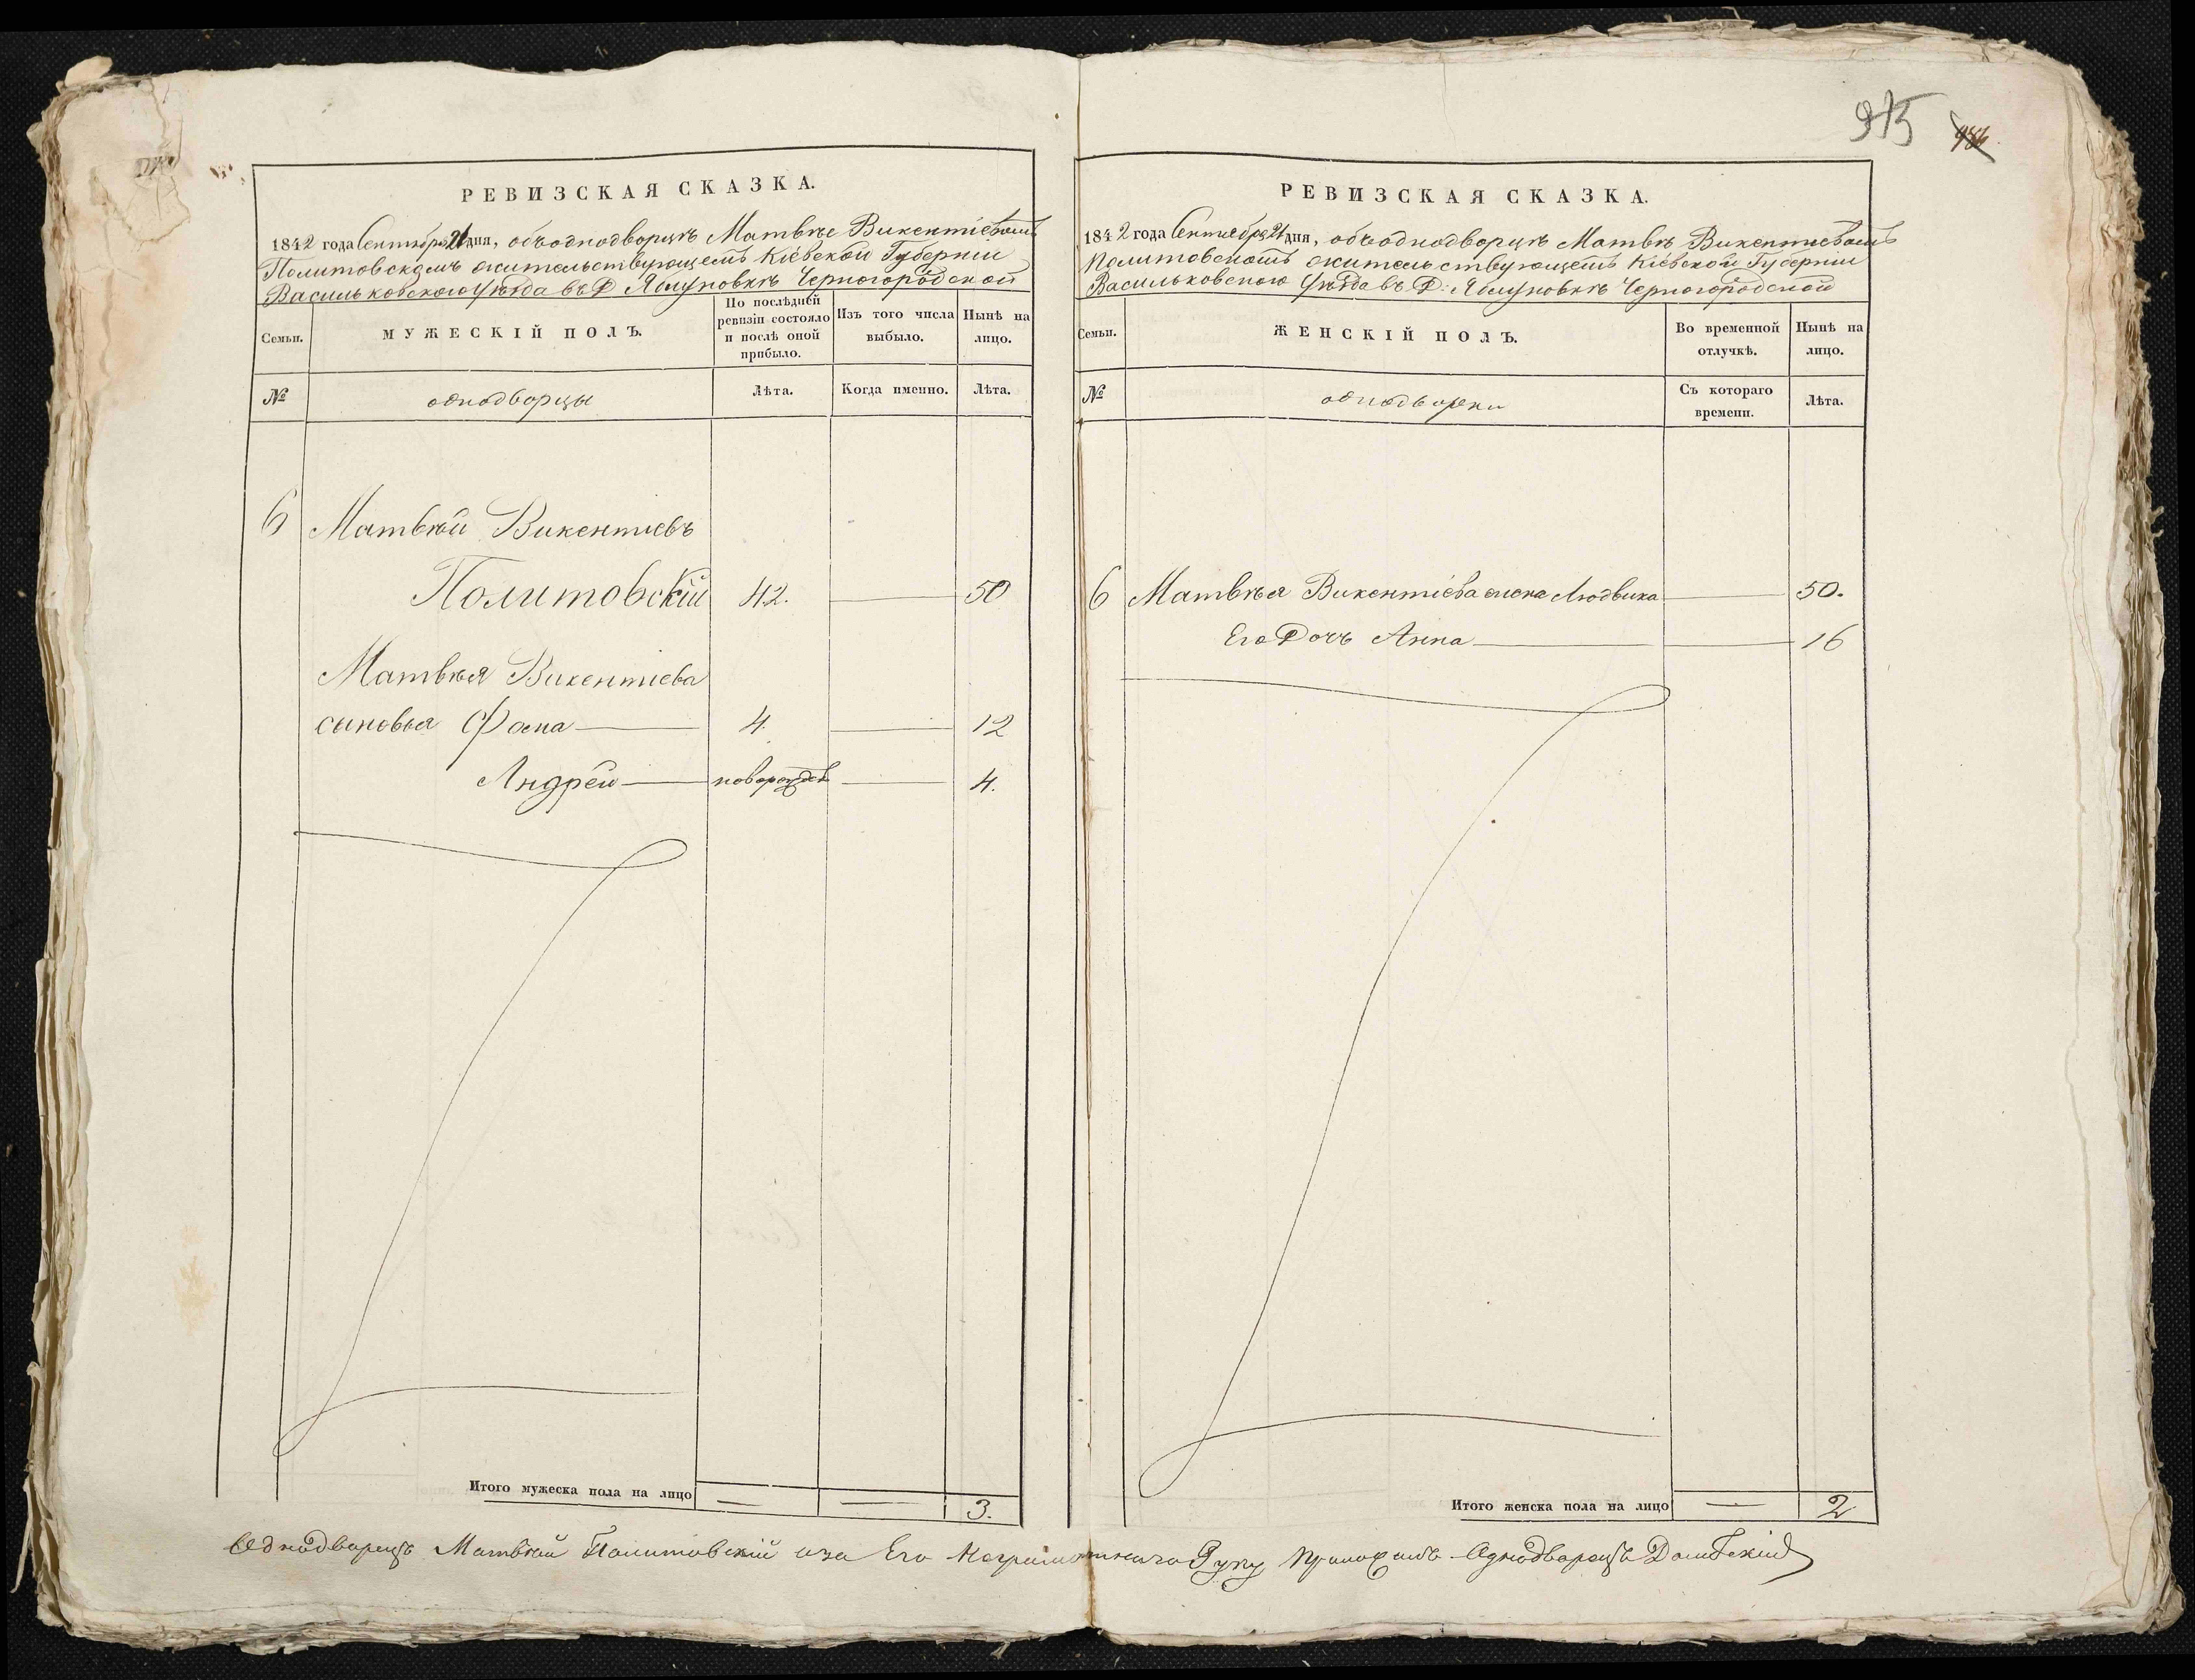 975
986
РЕВИЗСКАЯ СКАЗКА.
1842 года Сентября 21 дня, объ однодворцѣ Матвѣе Викентіевомъ
Политовскомъ жительствующемъ Кіевской Губерніи
Васильковского Уѣзда въ Д Яблуновкѣ Черногородской
Семьи.
МУЖЕСКІЙ ПОЛЪ.
По послѣдней ревизіи состояло и послѣ оной прибыло.
Изъ того числа выбыло.
Нынѣ на лицо.
№
однодворцы
Лѣта.
Когда именно.
Лѣта.
6 Матвѣй Викентиевъ
Политовскій 42. 50
Матвѣя Викентиева
сыновья Фома 4. 12
Андрей новорожден 4.
Итого мужеска пола на лицо 3.
РЕВИЗСКАЯ СКАЗКА.
1842 года Сентября 21 дня, объ однодворцѣ Матвѣ Викентиевомъ
Политовскомъ жительствующемъ Кіевской Губернии
Васильковского Уѣзда въ Д: Яблуновкѣ Черногородской
Семьи.
ЖЕНСКІЙ ПОЛЪ.
Во временной отлучкѣ.
Нынѣ на лицо.
№
однодворки
Съ котораго времени.
Лѣта.
6 Матвѣя Викентіева жена Людвика 50.
Его Дочь Анна 16
Итого женска пола на лицо 2
Однодворецъ Матвѣй Политовскій а за Его Неграмотнаго Руку приложилъ Однодворецъ